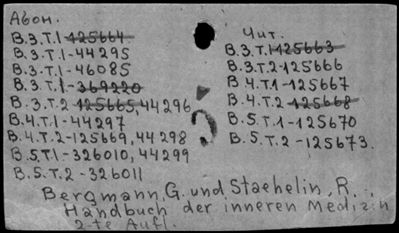 Абон.
B.3.T.1-125664
B.3.T.1-44295
B.3.T.1-46085
B.3.T.1-369220
B.3.T.2 125665,44296
B.4.T.1-44297
B.4.T.2-125669,44298
B.5.T.1-326010,44299
B.5.T.2-326011
Чит.
B.3.T.1-125663
B.3.T.2-125666
B.4.T.1-125667
B.4.T.2-125668
B.5.T.1-125670
B.5.T.2-125673.
5
Bergmann, G. und Staehelin, R.,
Handbuch der inneren Medizin
2-te Aufl.